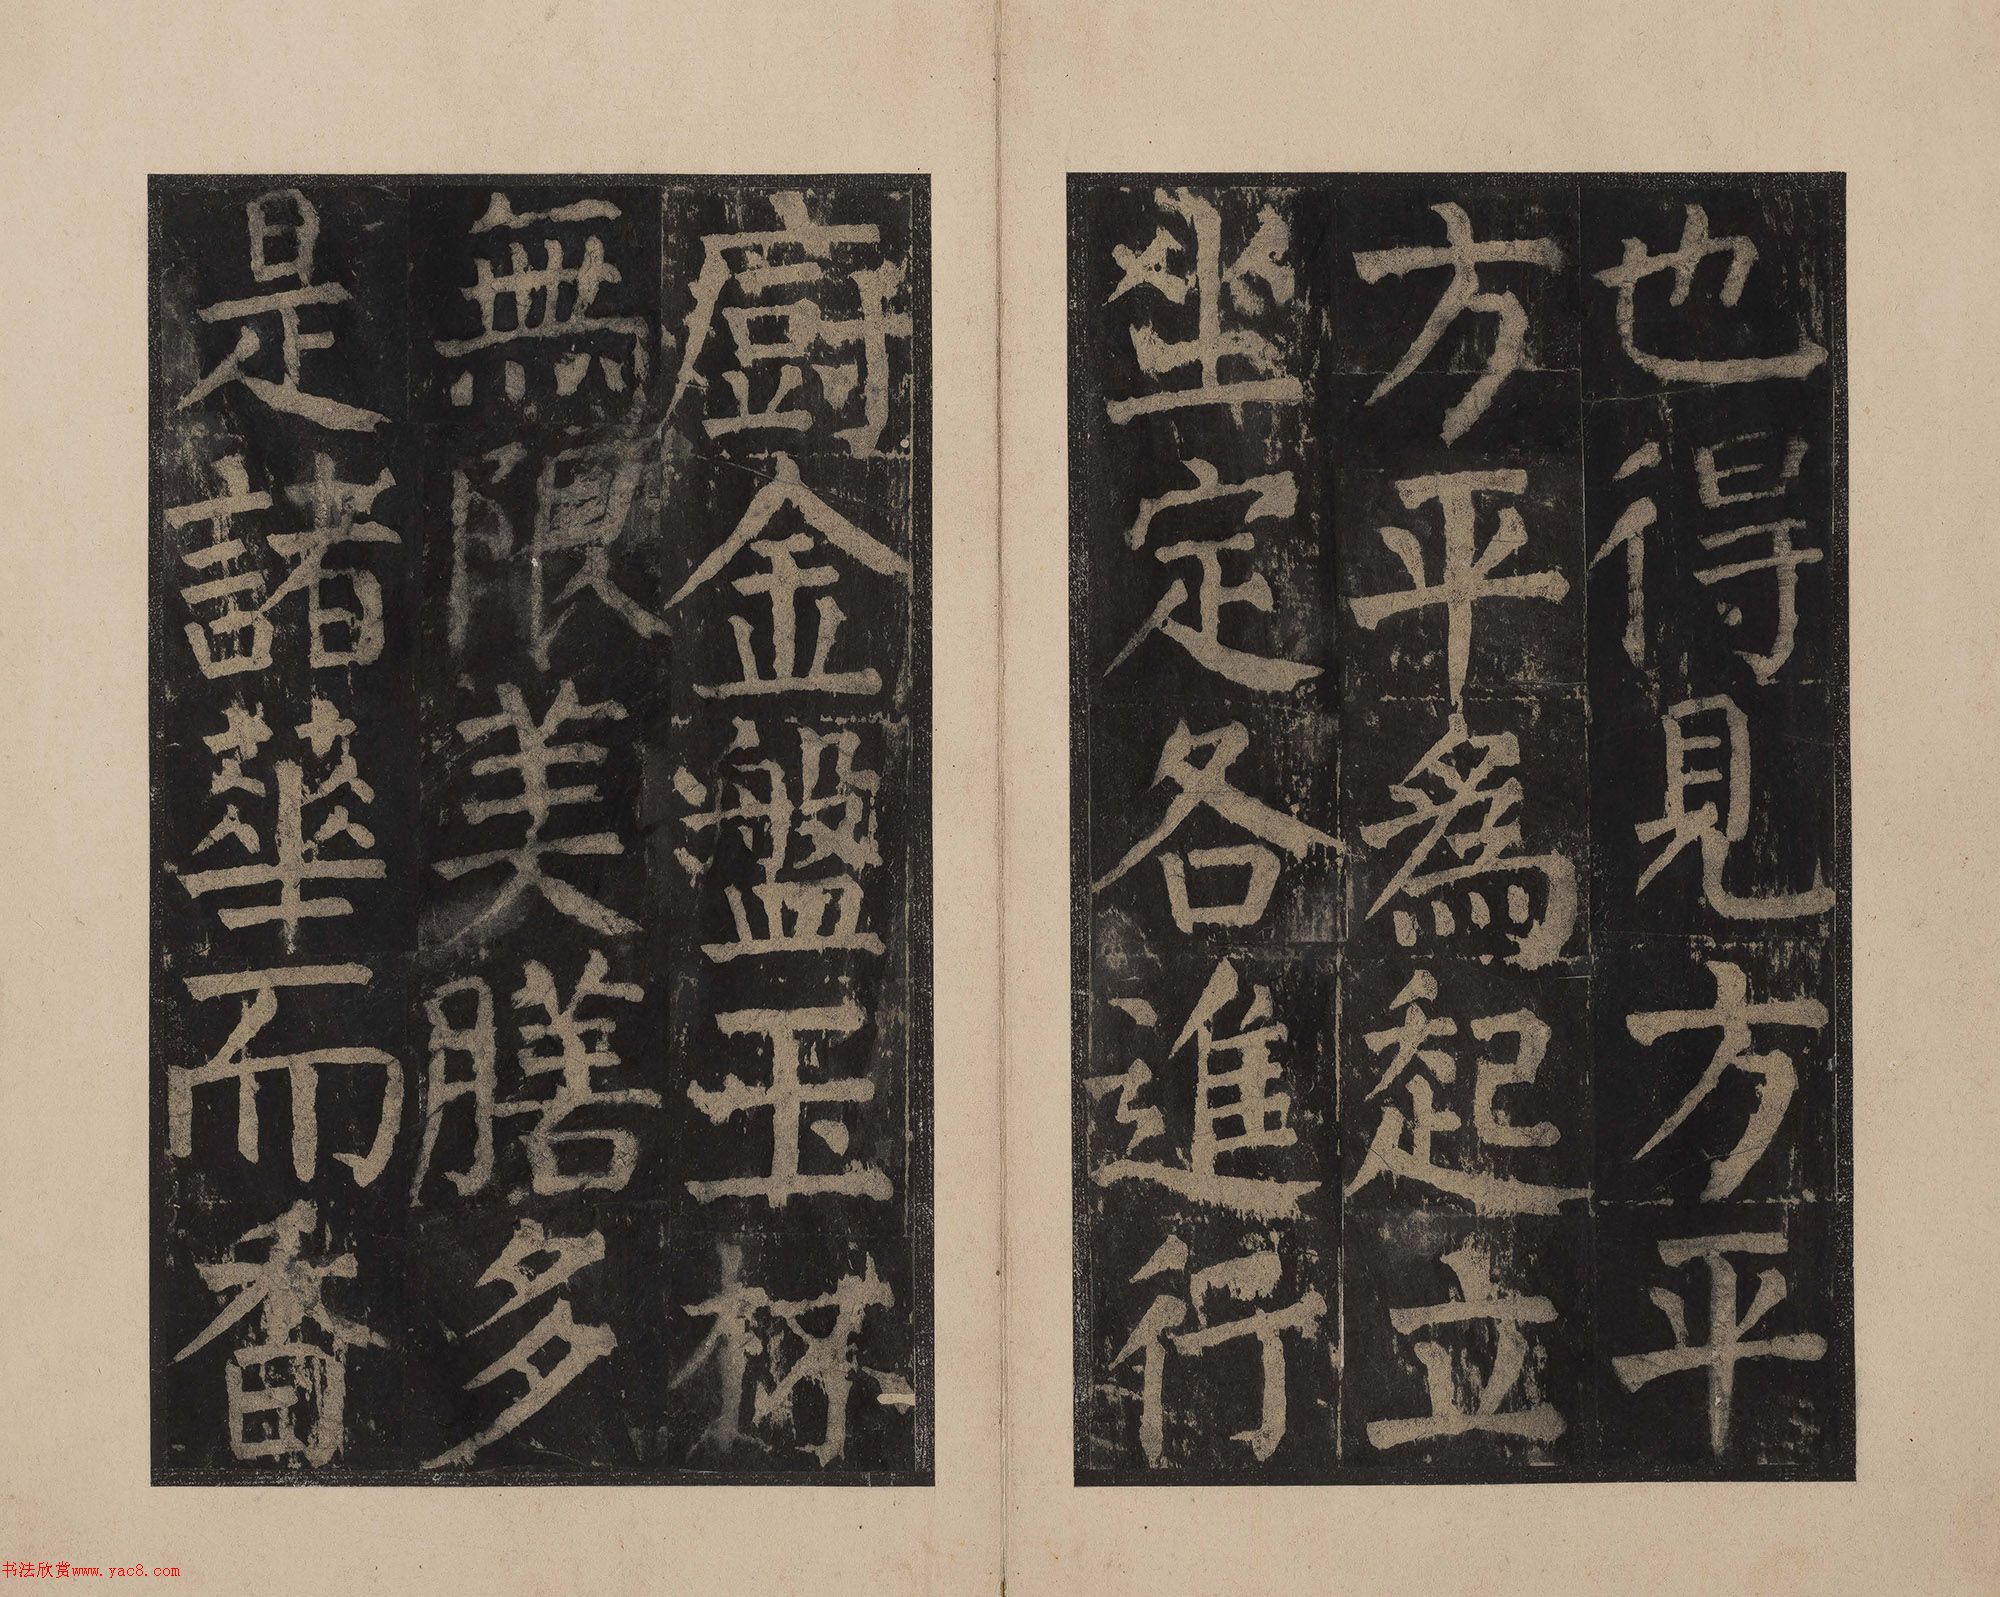 也得見方平
方平為起立
坐定各進行
廚金盤玉杯
無限美膳多
是諸華而香
书法欣赏www.yac8.com